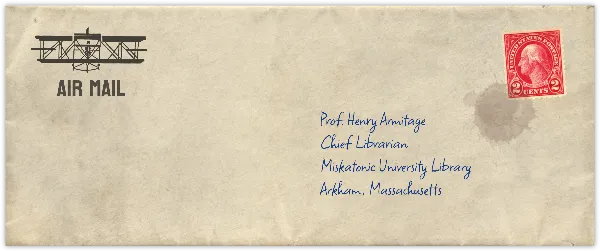 AIR MAIL
UNITED STATES POSTAGE
2 CENTS 2
Prof. Henry Armitage
Chief Librarian
Miskatonic University Library
Arkham, Massachusetts